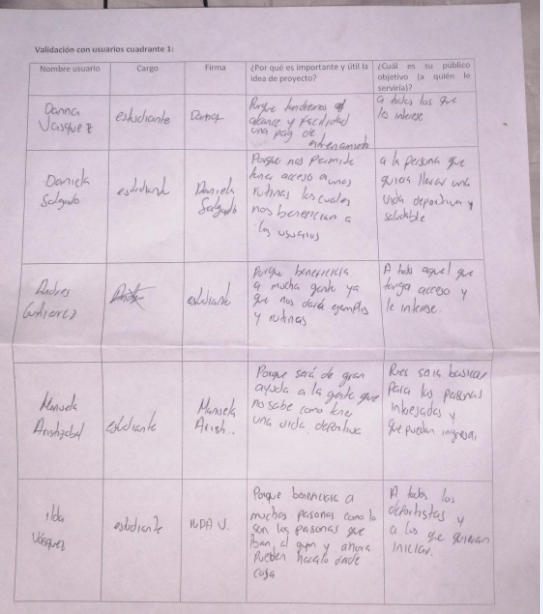 Validación con usuarios cuadrante 1:
Nombre usuario
Cargo
Firma
¿Por qué es importante y útil la
idea de proyecto?
¿Cuál es su público
objetivo (a quién le
serviría)?
Danna
Vasquez
estudiante
Danna
Porque tendremos al
alcance y facilidad
una pag de
entrenamiento
a todos los que
les interese
Daniela
Salgado
estudiante
Daniela
Salgado
Porque nos permite
tener acceso a unas
rutinas las cuales
nos benefician a
los usuarios
a la persona que
quiera llevar una
vida deportiva y
saludable
Andres
Gutierrez
estudiante
Porque beneficia
a mucha gente ya
que nos dará ejemplos
y rutinas
A todo aquel que
tenga acceso y
le interese.
Manuela
Aristizabal
estudiante
Manuela
Arist..
Porque será de gran
ayuda a la gente que
no sabe como tener
una vida deportiva
Para las personas
interesadas y
que puedan ingresar
Ilda
Vasquez
estudiante
ILDA V.
Porque beneficia a
muchas personas como lo
son las personas que
iban al gym y ahora
pueden hacerlo desde
casa
A todos los
deportistas y
a los que quieran
iniciar.